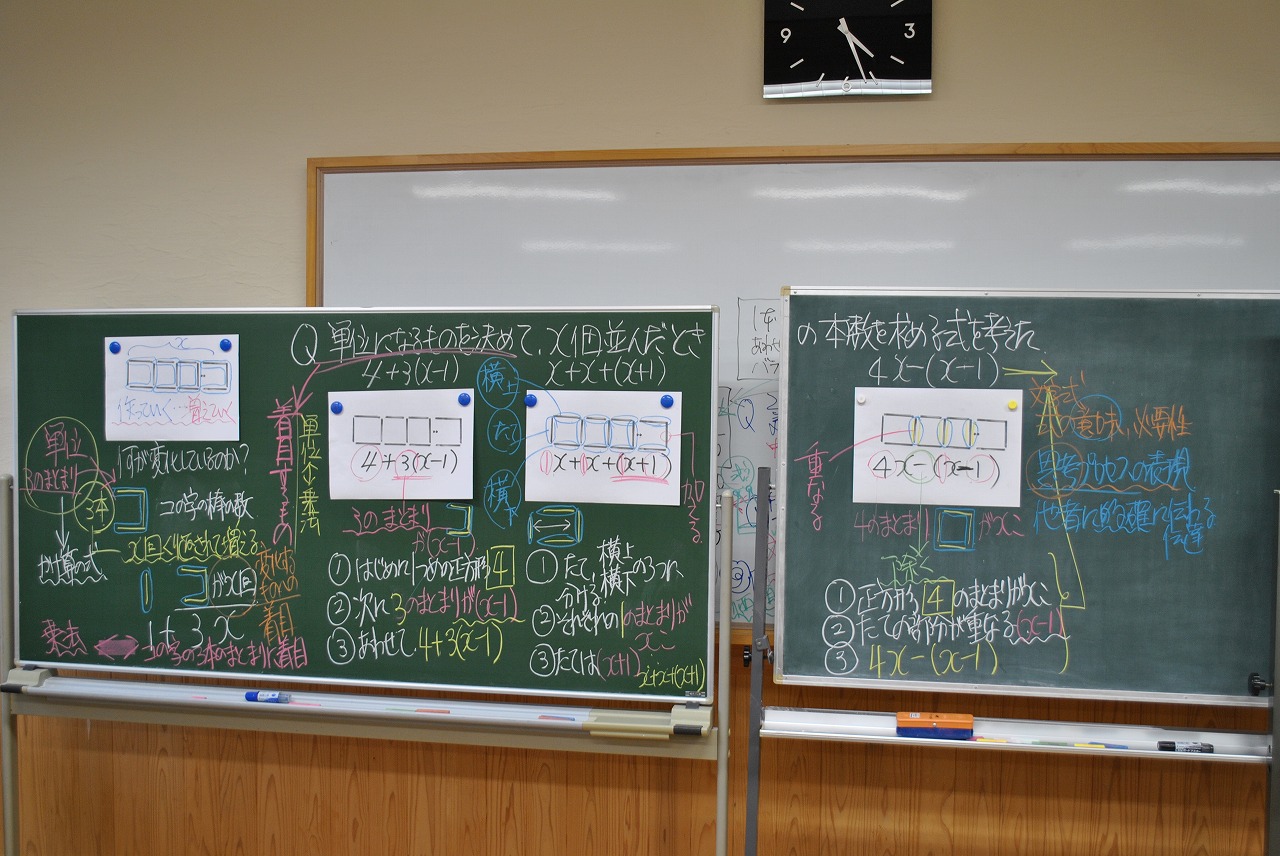 9
3
6
Q 単位になるものを決めて、x個並んだとき
の本数を求める式を考えた
x
作っていく…増えていく
単位
3のまとまり
3本
何が変化しているのか?
コの字の棒の数
x回くり返されて増える
がx回
1+3x
乗法
コの字の3本のまとまりに着目
着目するもの
単位
乗法
着目
4+3(x-1)
4+3(x-1)
3のまとまり
が(x-1)
① はじめに1つめの正方形4
② 次に3のまとまりが(x-1)
③ あわせて、4+3(x-1)
横上
たて
横下
x+x+(x+1)
x+x+(x+1)
加える
① たて、横上
横下の3つに
分ける
② それぞれの1のまとまりが
xこ
③ たては(x+1)
x+x+(x+1)
4x-(x-1)
4x-(x-1)
重なる
4のまとまり
がxこ
除く
① 正方形4のまとまりがxこ
② たての部分が重なる(x-1)
③ 4x-(x-1)
文字式
の意味、必要性
思考プロセスの表現
他者に的確に伝わる
伝達
Q